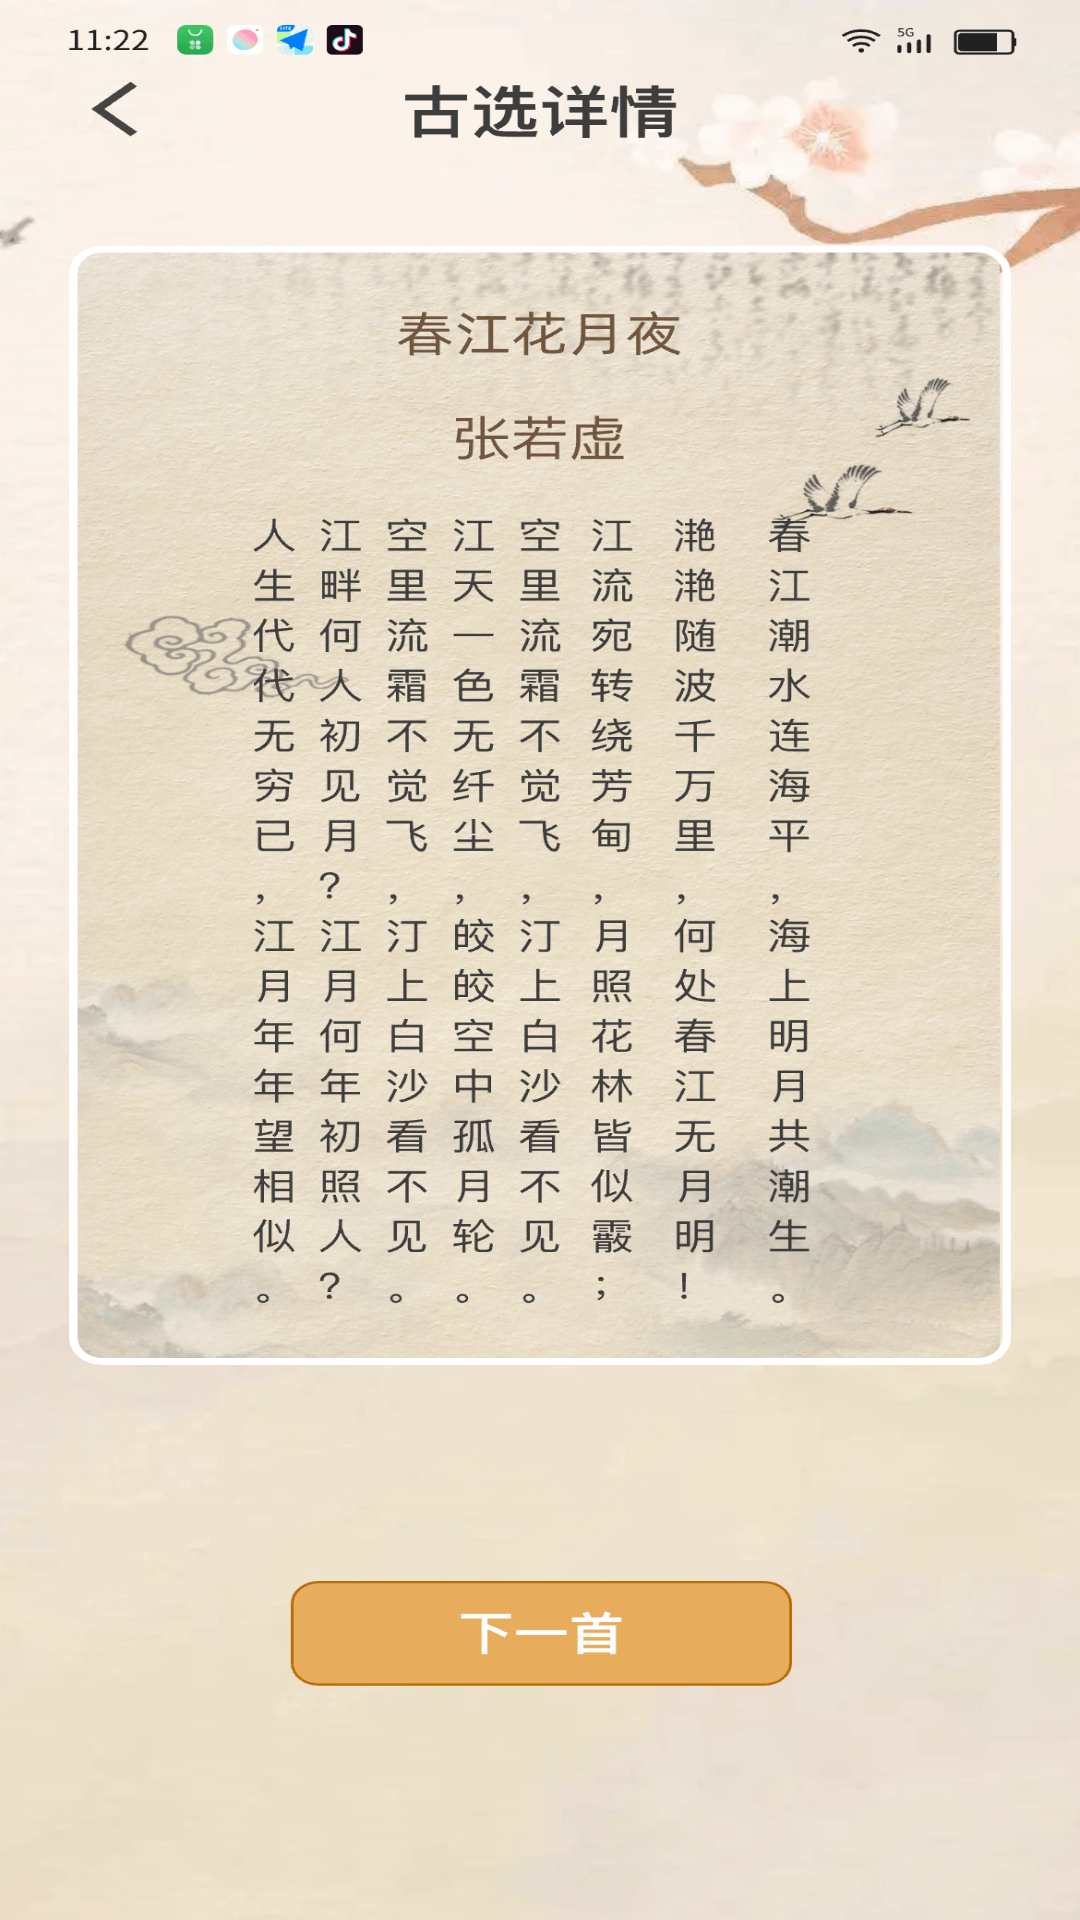 11:22
5G
古选详情
春江花月夜
张若虚
春江潮水连海平，海上明月共潮生。
滟滟随波千万里，何处春江无月明！
江流宛转绕芳甸，月照花林皆似霰；
空里流霜不觉飞，汀上白沙看不见。
江天一色无纤尘，皎皎空中孤月轮。
空里流霜不觉飞，汀上白沙看不见。
江畔何人初见月？江月何年初照人？
人生代代无穷已，江月年年望相似。
下一首